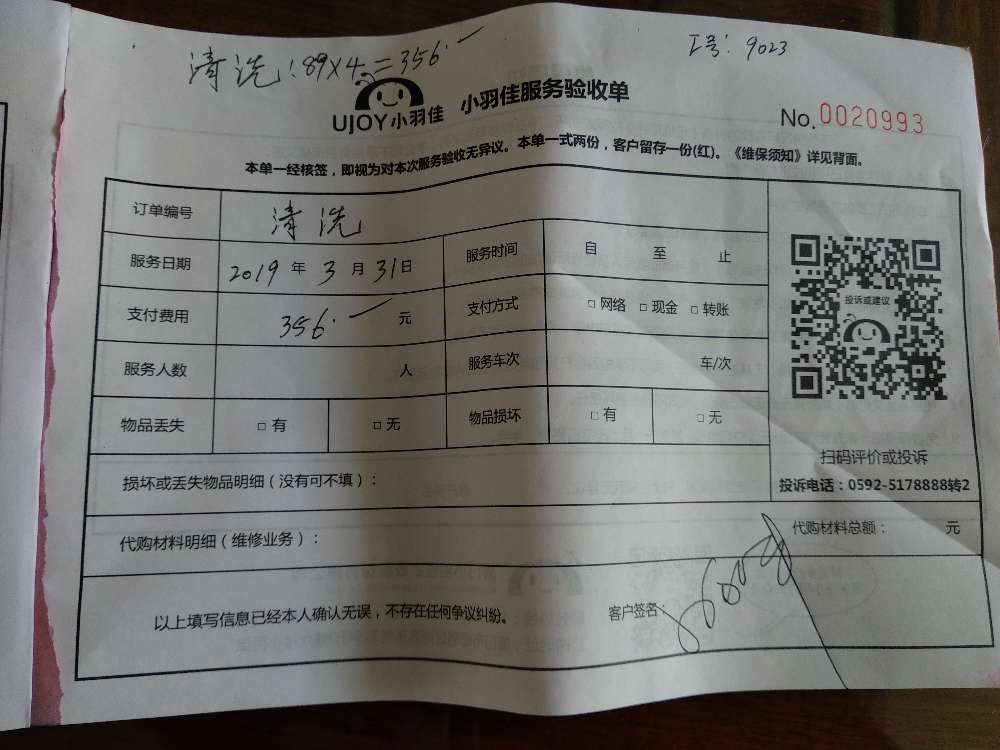 清洗：89×4=356.一
工号：9023
UJOY小羽佳 小羽佳服务验收单
No.0020993
本单一经核签，即视为对本次服务验收无异议。本单一式两份，客户留存一份(红)。《维保须知》详见背面。
订单编号 清洗
服务日期 2019年3月31日 服务时间 自 至 止
支付费用 356.一 元 支付方式 □ 网络 □ 现金 □ 转账
投诉或建议
服务人数 人 服务车次 车/次
物品丢失 □ 有 □ 无 物品损坏 □ 有 □ 无
扫码评价或投诉
投诉电话：0592-5178888转2
损坏或丢失物品明细（没有可不填）：
代购材料明细（维修业务）： 代购材料总额： 元
以上填写信息已经本人确认无误，不存在任何争议纠纷。 客户签名：